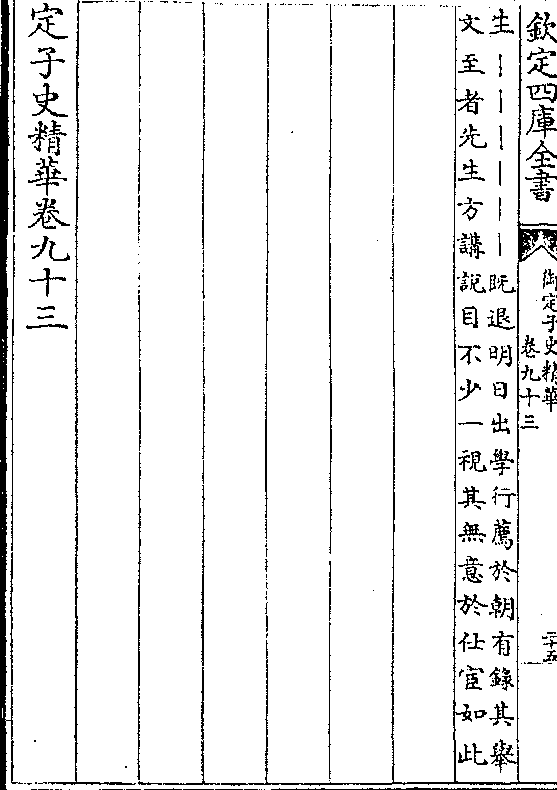 欽定四庫全書
御定子史精華
卷九十三
二十五
生｜｜｜｜｜｜既退明日出學行薦於朝有錄其舉
文至者先生方講說目不少一視其無意於仕宦如此
定子史精華卷九十三